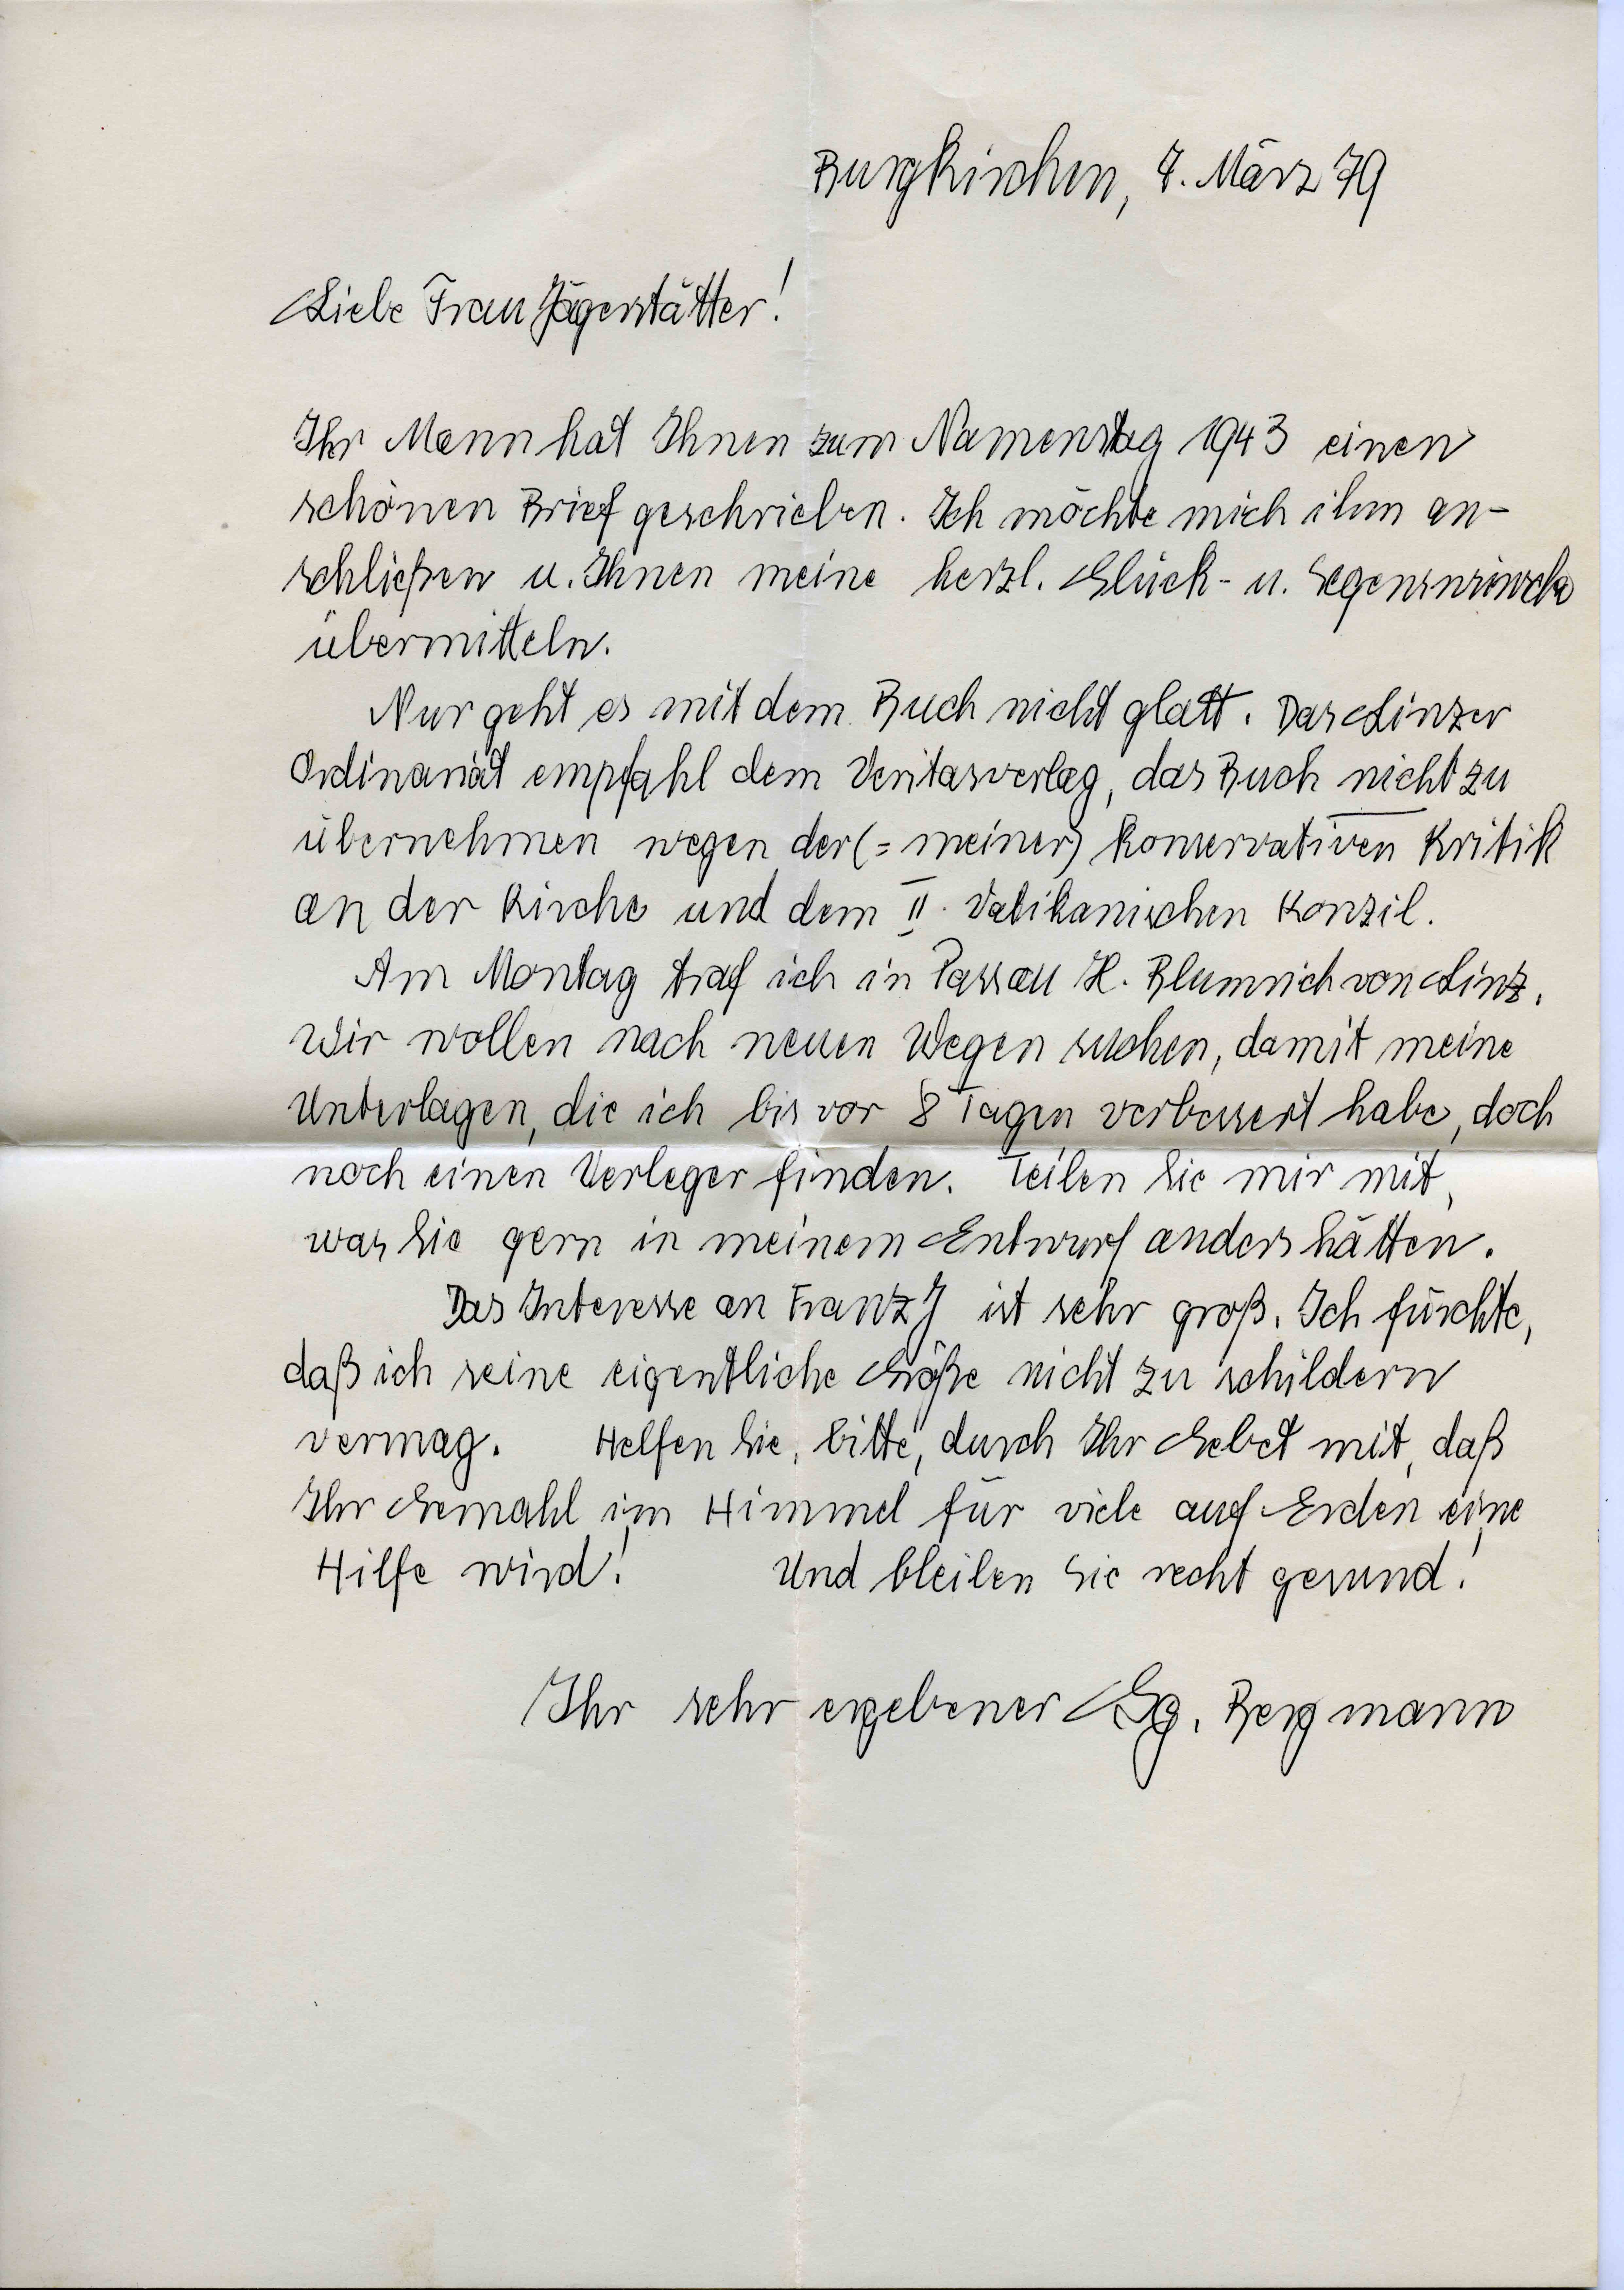 Burgkirchen, 7. März 79
Liebe Frau Jägerstätter!
Ihr Mann hat Ihnen zum Namenstag 1943 einen
schönen Brief geschrieben. Ich möchte mich ihm an-
schließen u. Ihnen meine herzl. Glück- u. Segenswünsche
übermitteln.
Nur geht es mit dem Buch nicht glatt. Das Linzer
Ordinariat empfahl dem Veritasverlag, das Buch nicht zu
übernehmen wegen der (= meiner) konservativen Kritik
an der Kirche und dem II. Vatikanischen Konzil.
Am Montag traf ich in Passau H. Blumrich von Linz.
Wir wollen nach neuen Wegen suchen, damit meine
Unterlagen, die ich bis vor 8 Tagen verbessert habe, doch
noch einen Verleger finden. Teilen Sie mir mit,
was Sie gern in meinem Entwurf anders hätten.
Das Interesse an Franz J ist sehr groß. Ich fürchte,
daß ich seine eigentliche Größe nicht zu schildern
vermag. Helfen Sie, bitte, durch Ihr Gebet mit, daß
Ihr Gemahl im Himmel für viele auf Erden eine
Hilfe wird! Und bleiben Sie recht gesund!
Ihr sehr ergebener Gg. Bergmann